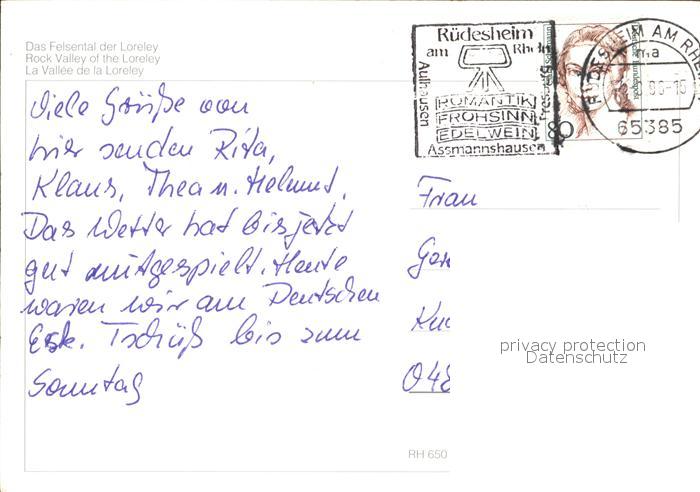 Das Felsental der Loreley
Rock Valley of the Loreley
La Vallée de la Loreley
Viele Grüße von
hier senden Rita,
Klaus, Thea u. Helmut.
Das Wetter hat bis jetzt
gut mitgespielt. Heute
waren wir am Deutschen
Eck. Tschüß bis zum
Sonntag
Rüdesheim
am Rhein
Aulhausen
Presberg
ROMANTIK
FROHSINN
EDELWEIN
Assmannshausen
80
RÜDESHEIM AM RHEIN
ma
65385
Frau
048
privacy protection
Datenschutz
RH 650